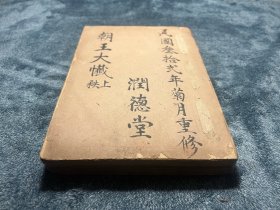 民國叁拾弍年菊月重修
潤德堂
朝王大懺上秩